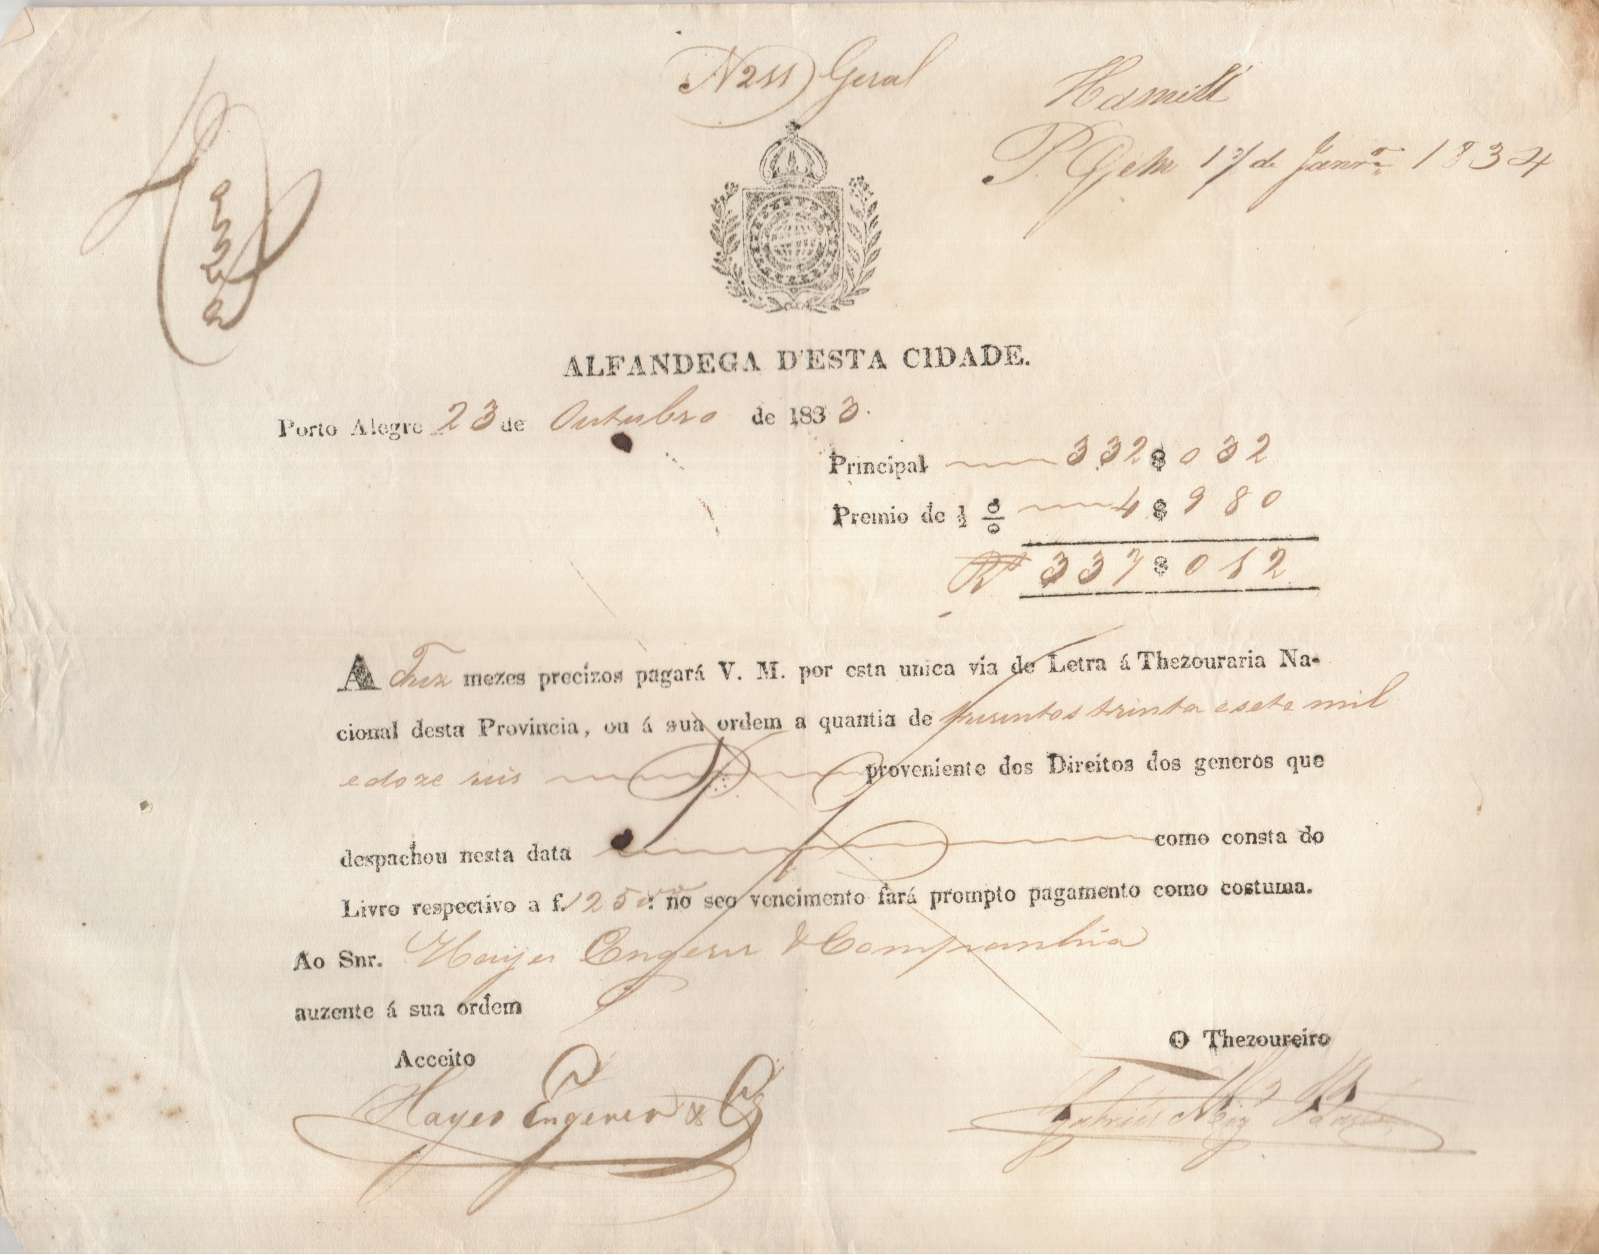 N 211 Geral
P. 17 de Janrº 1834
ALFANDEGA D'ESTA CIDADE.
Porto Alegre 23 de Outubro de 1833.
Principal 332$032
Premio de ½ % 4$980
Rs 337$012
A Trez mezes precizos pagará V. M. por esta unica via de Letra á Thezouraria Na-
cional desta Provincia, ou á sua ordem a quantia de tresentos trinta e sete mil
e doze reis proveniente dos Direitos dos generos que
despachou nesta data como consta do
Livro respectivo a f. 125 no seo vencimento fará prompto pagamento como costuma.
Ao Snr. Hayes Engerer & Companhia
auzente á sua ordem
Acceito
O Thezoureiro
Hayes Engerer & Cª